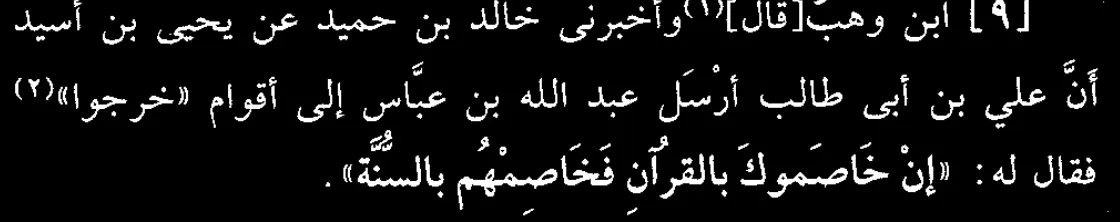 [٩] ابن وهب[قال](١)وأخبرنى خالد بن حميد عن يحيى بن أسيد
أَنَّ علي بن أبى طالب أرْسَل عبد الله بن عبَّاس إلى أقوام «خرجوا»(٢)
فقال له: «إنْ خَاصَموكَ بالقرُآنِ فَخَاصِمْهُم بالسُّنَّة».